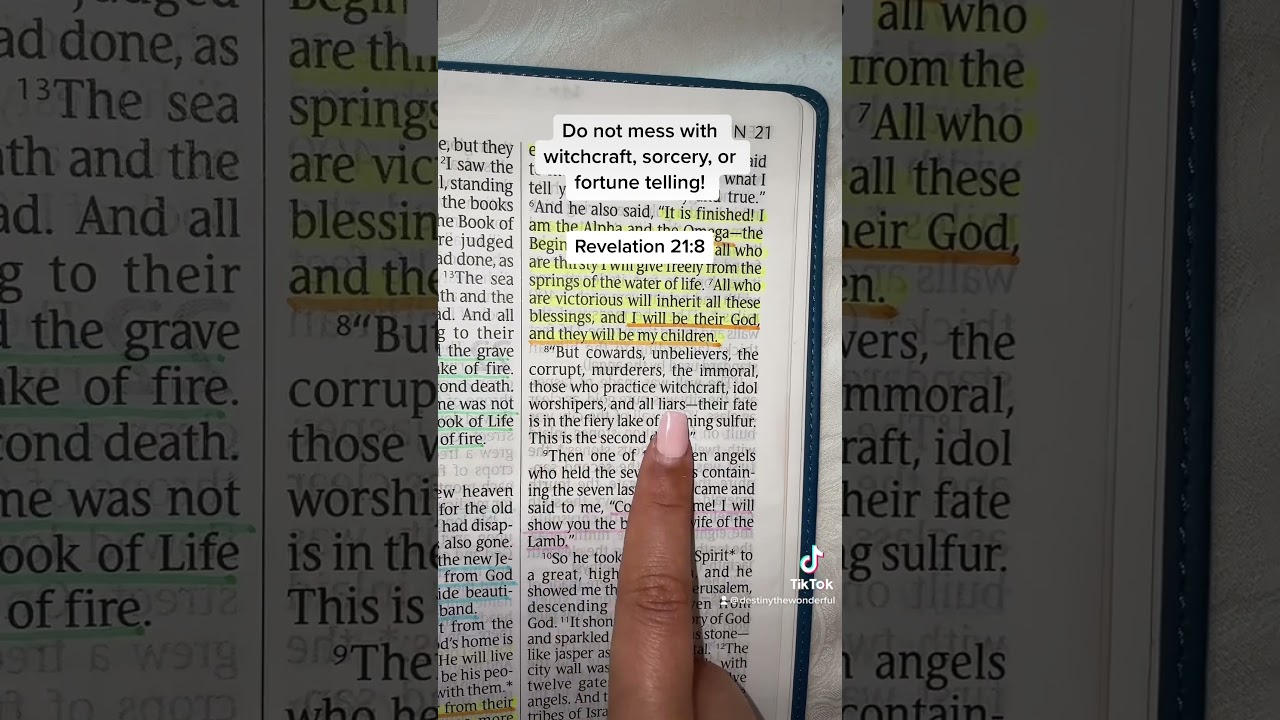 Begin
ad done, as
are thi
13The sea
springs
ath and the
are vic
ad. And all
blessin
g to their
and the
d the grave
8“But
ake of fire.
corrup
cond death.
those v
me was not
worshi
ook of Life
is in the
of fire.
This is
9The
who he
Do not mess with
witchcraft, sorcery, or
fortune telling!
Revelation 21:8
N 21
e, but they
2I saw the
l, standing
the books
ne Book of
re judged
ad done, as
13The sea
ath and the
ad. And all
g to their
d the grave
ake of fire.
cond death.
me was not
ook of Life
of fire.
ew heaven
for the old
had disap-
also gone.
the new Je-
from God
ide beauti-
band.
t from the
d’s home is
He will live
be his peo-
with them.*
from their
more
aid
what I
tell y
true.”
6And he also said, “It is finished! I
am the Alpha and the Omega—the
Begin
all who
are thirsty I will give freely from the
springs of the water of life. 7All who
are victorious will inherit all these
blessings, and I will be their God,
and they will be my children.
8“But cowards, unbelievers, the
corrupt, murderers, the immoral,
those who practice witchcraft, idol
worshipers, and all liars—their fate
is in the fiery lake of ning sulfur.
This is the second d ”
9Then one of en angels
who held the sev s contain-
ing the seven las came and
said to me, “Co me! I will
show you the b ife of the
Lamb.”
10So he took Spirit* to
a great, high and he
showed me th erusalem,
descending ven from
God. 11It shon ory of God
and sparkled s stone—
like jasper as tal. 12The
city wall was with
twelve gate elve
angels. And t
tribes of Isra
TikTok
@destinythewonderful
all who
from the
7All who
all these
eir God,
en.
vers, the
mmoral,
raft, idol
heir fate
g sulfur.
angels
contain-